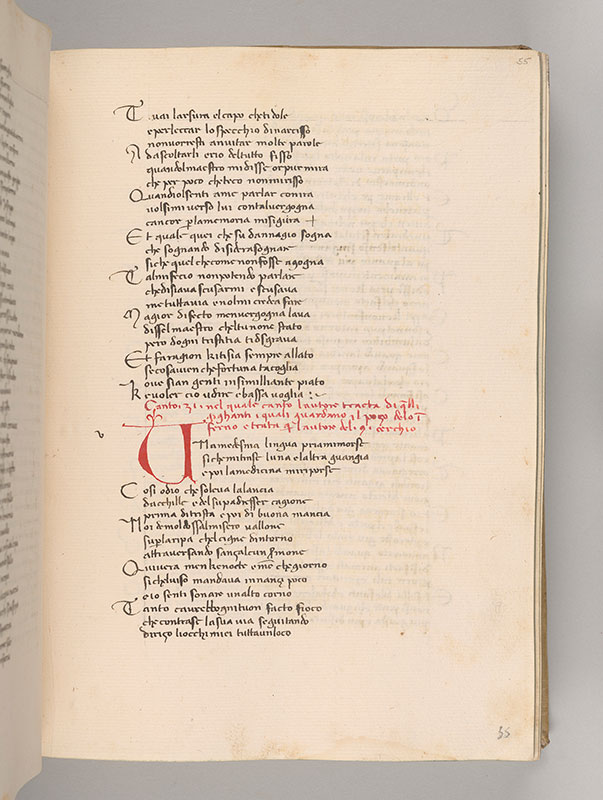 55
Tu ai larsura elcapo chetidole
eperleccar lo specchio dinarcisso
nonvorresti anvitar molte parole
Ad ascoltarli erio deltutto fisso
quandolmaestro midisse orpur mira
che per poco cheteco nonmirisso
Quandiolsenti ame parlar conira
volsimi verso lui contalvergogna
cancor p lamemoria misigira
Et quale quei che su dannagio sogna
che sognando disidera sognare
siche quel che come nonfosse agogna
Talmifecio nonpotendo parlare
chedisiava scusarmi escusava
me tuttavia enolmi credea fare
Magior difecto menvergogna lava
dissel maestro cheltu none stato
pero dogni tristitia tidsgrava
Et faragion kitisia sempre allato
se cosaven che fortuna tacoglia
ove sian genti insimilliante piato
Ke voler cio udire e bassa voglia
Canto 31 nel quale canto lautore tracta di q̄lli
giganti i quali guardano il pozo de lo ī
ferno e tratta q̄ lautore del 9 cerchio
v
Una medesma lingua priamimorse
sichemitinse luna elaltra guangia
epoi lamedicina miriporse
Cosi odio che soleva lalancia
dacchille e del supadresser cagione
prima ditrista epoi di buona mancia
Noi demoldossalmisero vallone
sup laripa chelcigne dintorno
attraversando sanza alcun sermone
Quivera men kenocte emē chegiorno
sichelviso mandava innanzi poco
eio senti sonare unalto corno
Tanto cavrebbognituon facto fioco
che contra se lasua via seguitando
dirizo liocchi miei tuttauniloco
55